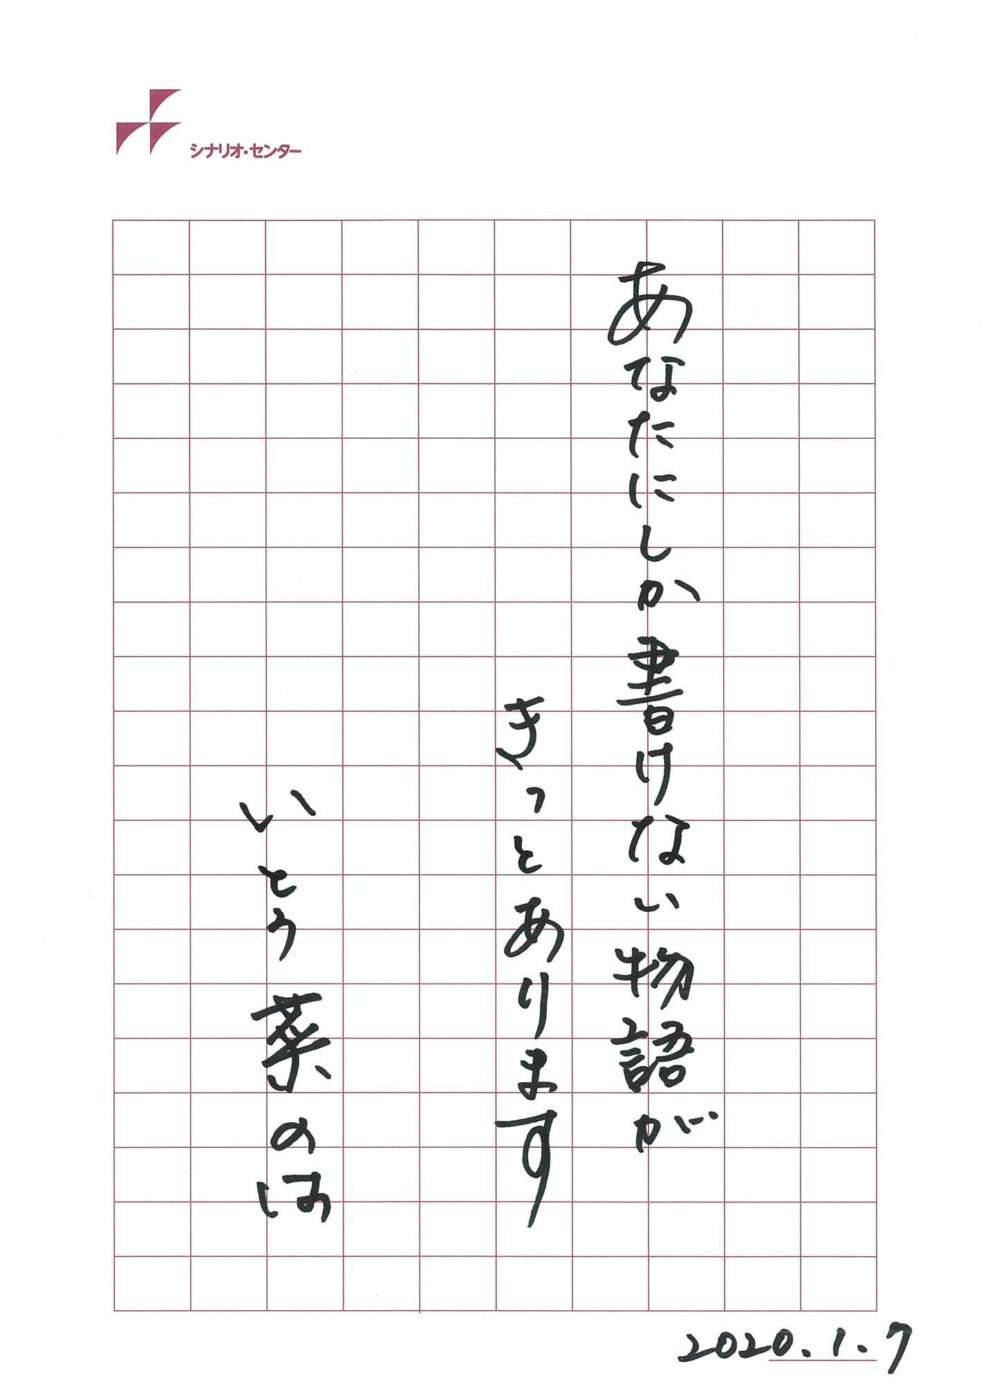 シナリオ・センター
あなたにしか書けない物語が
きっとあります
いとう菜のは
2020.1.7